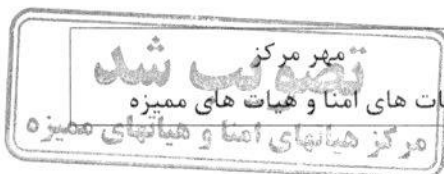 مهر مرکز
تصویب شد
ات های امنا و هیات های ممیزه
مرکز هیاتهای امنا و هیاتهای ممیزه